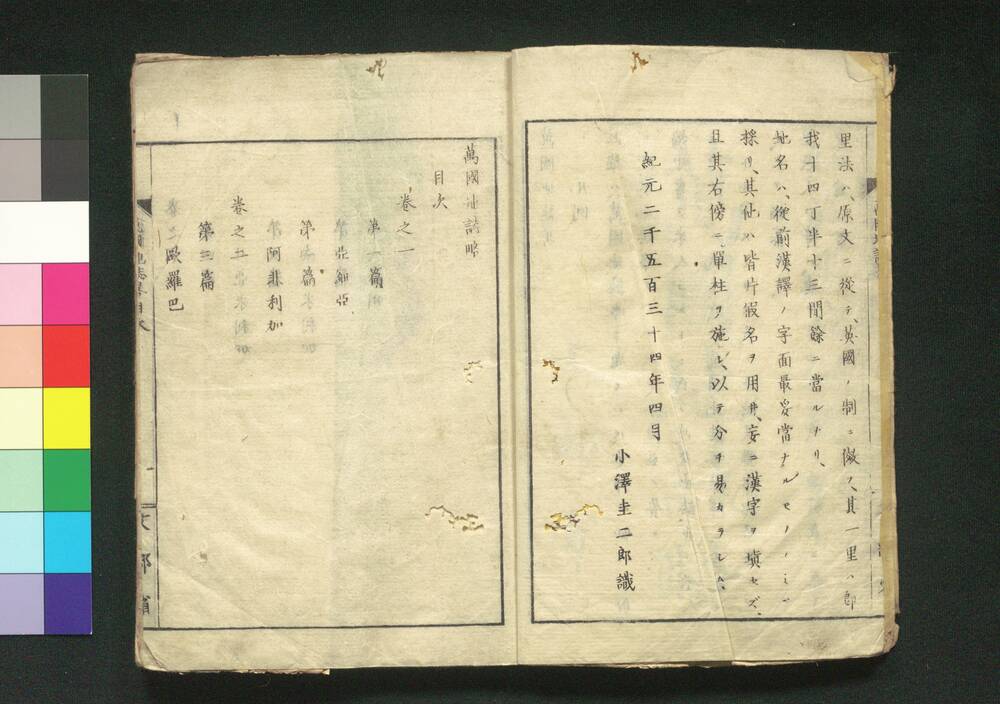 里法ハ、原文ニ從テ、英國ノ制ニ倣ヘ、其一里ハ郎
我十四丁半十三間餘ニ當ルナリ、
地名ハ、從前漢譯ノ字面最妥當ナルモノノミヲ
採リ、其他ハ皆片假名ヲ用井、妄ニ漢字ヲ塡セズ、
且其右傍ニ單柱ヲ施シ、以テ分チ易カラシム、
紀元二千五百三十四年四月
小澤圭二郎識
萬國地誌略
目次
卷之一
第一篇
亞細亞
第二篇
阿非利加
卷之二
第三篇
歐羅巴
文部省